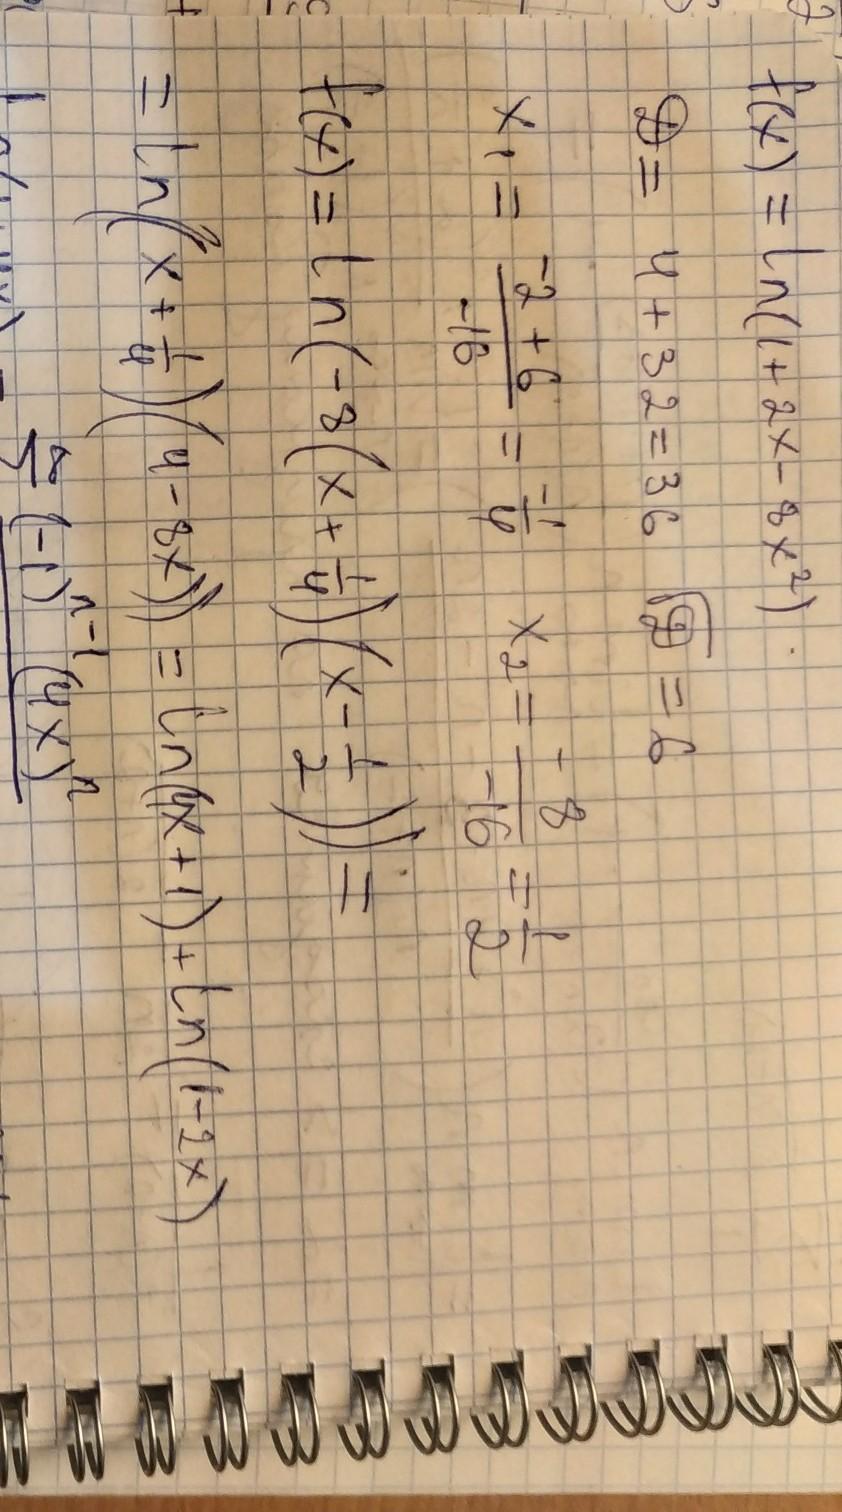 f(x) = ln(1+2x-8x²).
D = 4+32=36 √D = 6
x₁ = (-2+6)/(-16) = -1/4 x₂ = -8/-16 = 1/2
f(x) = ln(-8(x+1/4)(x-1/2)) =
= ln((x+1/4)(4-8x)) = ln(4x+1)+ln(1-2x)
∞
Σ (-1)ⁿ⁻¹ (4x)ⁿ